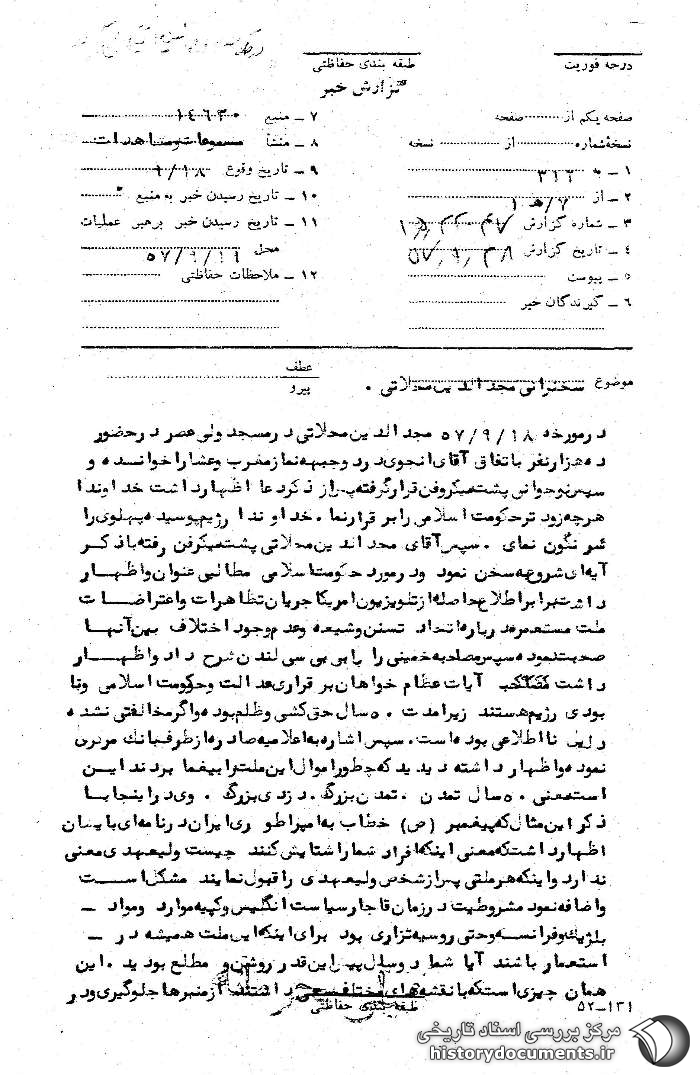 درجه فوریت
طبقه بندی حفاظتی
گزارش خبر
صفحه یکم از صفحه
نسخه شماره از نسخه
۱ - به ۳۱۲
۲ - از ۷/ه ۱
۳ - شماره گزارش
۴ - تاریخ گزارش
۵ - پیوست
۶ - گیرندگان خبر
۷ - منبع ۱۴۶۳۰
۸ - منشأ مسموعات و مشاهدات
۹ - تاریخ وقوع ۹/۱۸
۱۰ - تاریخ رسیدن خبر به منبع
۱۱ - تاریخ رسیدن خبر برهبر عملیات
محل ۵۷/۹/۱۹
۱۲ - ملاحظات حفاظتی
عطف
پیرو
موضوع سخنرانی مجد الدین محلاتی .
در مورخه ۵۷/۹/۱۸ مجد الدین محلاتی در مسجد ولی عصر در حضور
ده هزار نفر باتفاق آقای انجوی در دو جبهه نماز مغرب و عشا را خوانده و
سپس نوجوانی پشت میکروفن قرار گرفته پس از ذکر دعا اظهار داشت خداوندا
هر چه زود تر حکومت اسلامی را بر قرار نما . خداوندا رژیم پوسیده پهلوی را
سر نگون نمای . سپس آقای مجد الدین محلاتی پشت میکرفن رفته با ذکر
آیه ای شروع به سخن نمود و در مورد حکومت اسلامی مطالبی عنوان و اظهار
داشت برابر اطلاع حاصله از تلویزیون امریکا جریان تظاهرات و اعتراضات
ملت مستعمره در باره اتحاد تسنن و شیعه و عدم وجود اختلاف بین آنها
صحبت نموده سپس مصاحبه خمینی را با بی بی سی لندن شرح داد و اظهار
داشت آیات عظام خواهان بر قراری عدالت و حکومت اسلامی و نا
بودی رژیم هستند زیرا مدت ۵۰ سال حق کشی و ظلم بوده و اگر مخالفتی نشده
دلیل نا اطلاعی بوده است . سپس اشاره به اعلامیه صادره از طرف بانک مرکزی
نموده و اظهار داشته دیدید که چطور اموال این ملت را بیغما بردند این
است معنی ۵۰ سال تمدن . تمدن بزرگ . دزدی بزرگ . وی در اینجا با
ذکر این مثال که پیغمبر (ص) خطاب به امپراطوری ایران در نامه ای بایشان
اظهار داشت که معنی اینکه افراد شما را ستایش کنند چیست ولیعهدی معنی
ندارد و اینکه هر ملتی پس از شخص ولیعهدی را قبول نمایند مشکل است
و اضافه نمود مشروطیت در زمان قاجار سیاست انگلیس و کپیه موارد و مواد -
بلژیک و فرانسه و حتی روسیه تزاری بود برای اینکه این ملت همیشه در -
استعمار باشند آیا شما دو سال پیش این قدر روشن و مطلع بودید . این
همان چیزی است که با نقشه های مختلف سعی داشتند از منبرها جلوگیری و در
طبقه بندی حفاظتی
۵۲-۱۳۱
مرکز بررسی اسناد تاریخی
historydocuments.ir